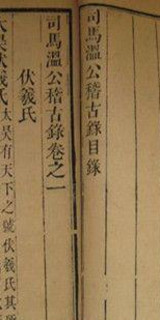 司馬溫公稽古錄目錄
司馬溫公稽古錄卷之一
伏羲氏
太昊有天下之號伏羲氏其
太昊伏羲氏